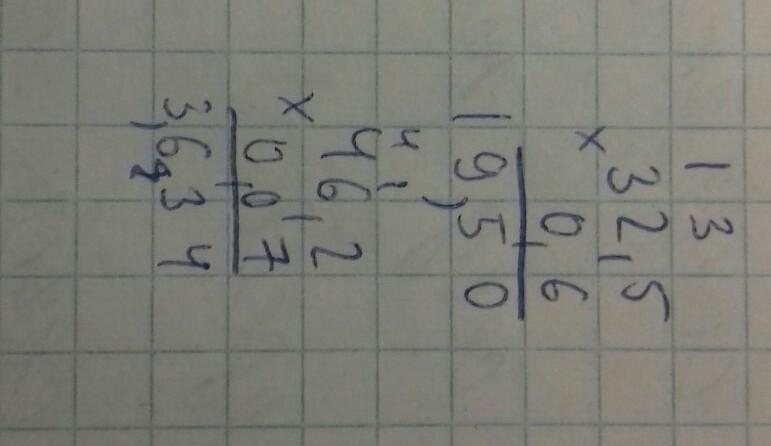 1 3
× 32,5
0,6
19,50
4 1
× 46,2
0,07
3,634
2